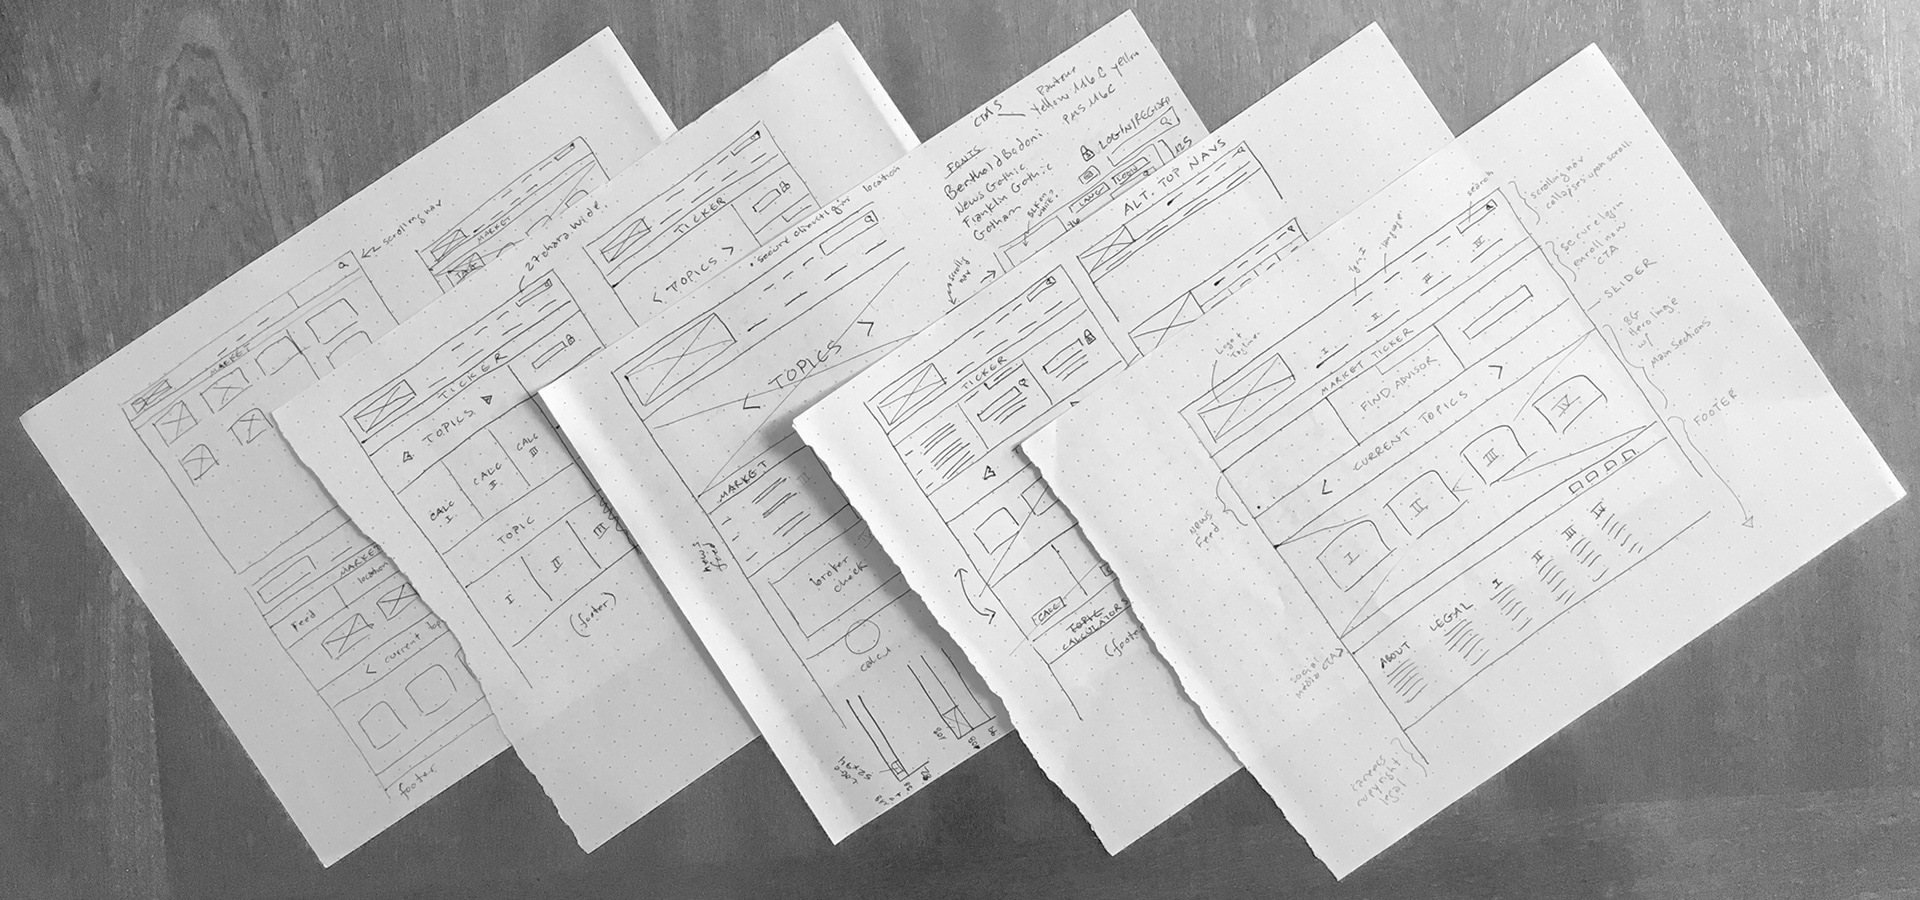 scrolling nav
MARKET
MARKET
location
Feed
< current
footer
27 chara. wide
TICKER
< TOPICS >
TICKER
TOPICS
CALC I
CALC II
CALC III
TOPIC
I
II
III
(footer)
location
• secure client login
< TOPICS >
MARKET
news feed
broker check
calcul
CTAS
Pantone
Yellow 116 C yellow
PMS 116C
FONTS
Berthold Bodoni
News Gothic
Franklin Gothic
Gotham
LOGIN/REGISTER
125
ALT. TOP NAVS
TICKER
TOPIC
CALCULATORS
(footer
search
scrolling nav
collapses upon scroll
secure login
enroll now
CTA
SLIDER
BG
Hero Image
w/
Main Sections
FOOTER
language
Logo &
Tagline
I
II
III
IV
MARKET TICKER
FIND ADVISOR
< CURRENT TOPICS >
I
II
III
IV
News
Feed
ABOUT
LEGAL
I
II
III
IV
social
media CTA
careers
copyright
legal